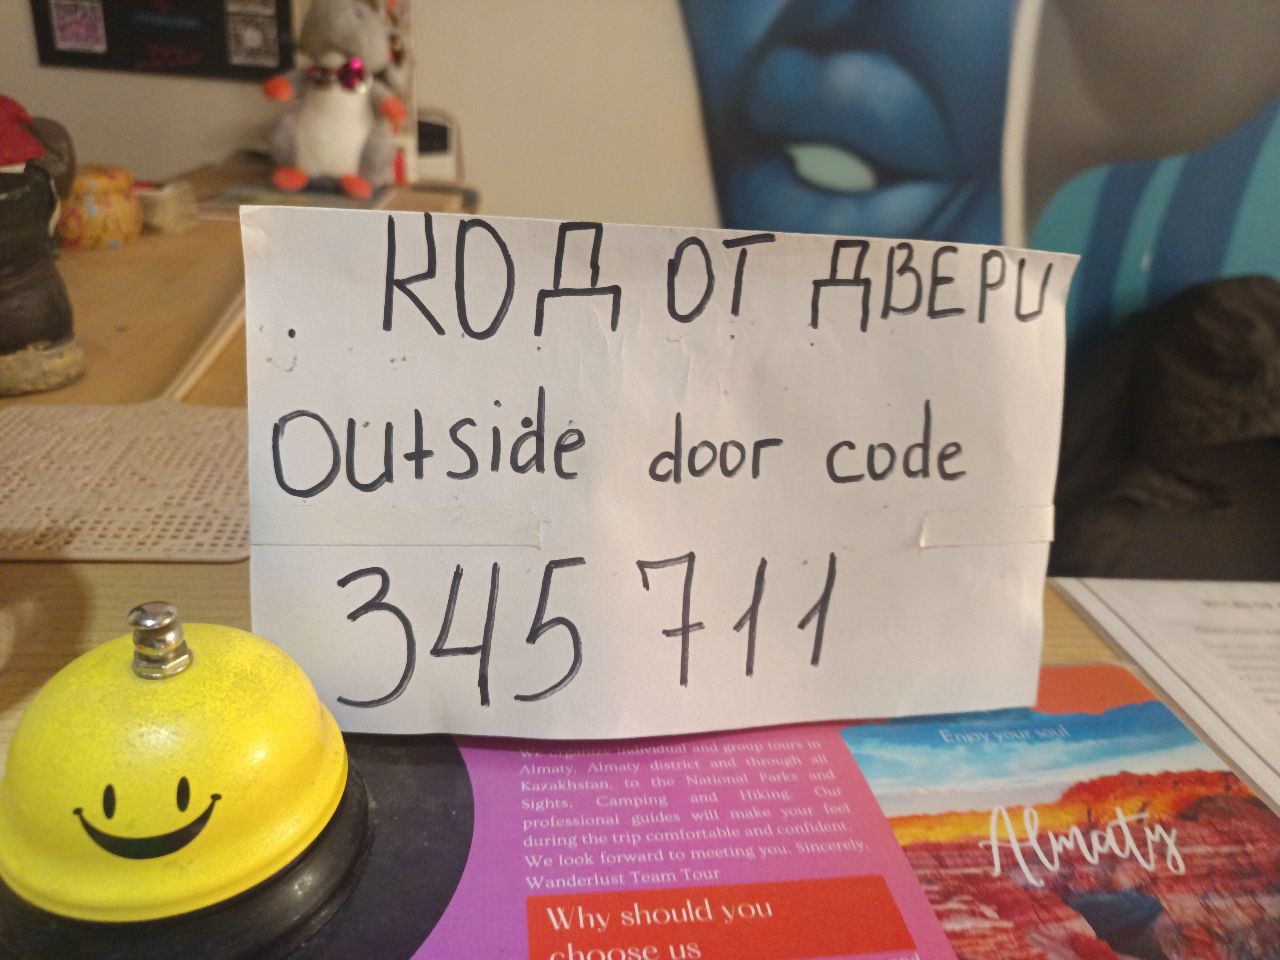 КОД ОТ ДВЕРИ
outside door code
345 711
We organize individual and group tours in
Almaty, Almaty district and through all
Kazakhstan, to the National Parks and
Sights, Camping and Hiking. Our
professional guides will make your feel
during the trip comfortable and confident.
We look forward to meeting you. Sincerely,
Wanderlust Team Tour
Why should you
choose us
Enjoy your soul
Almaty